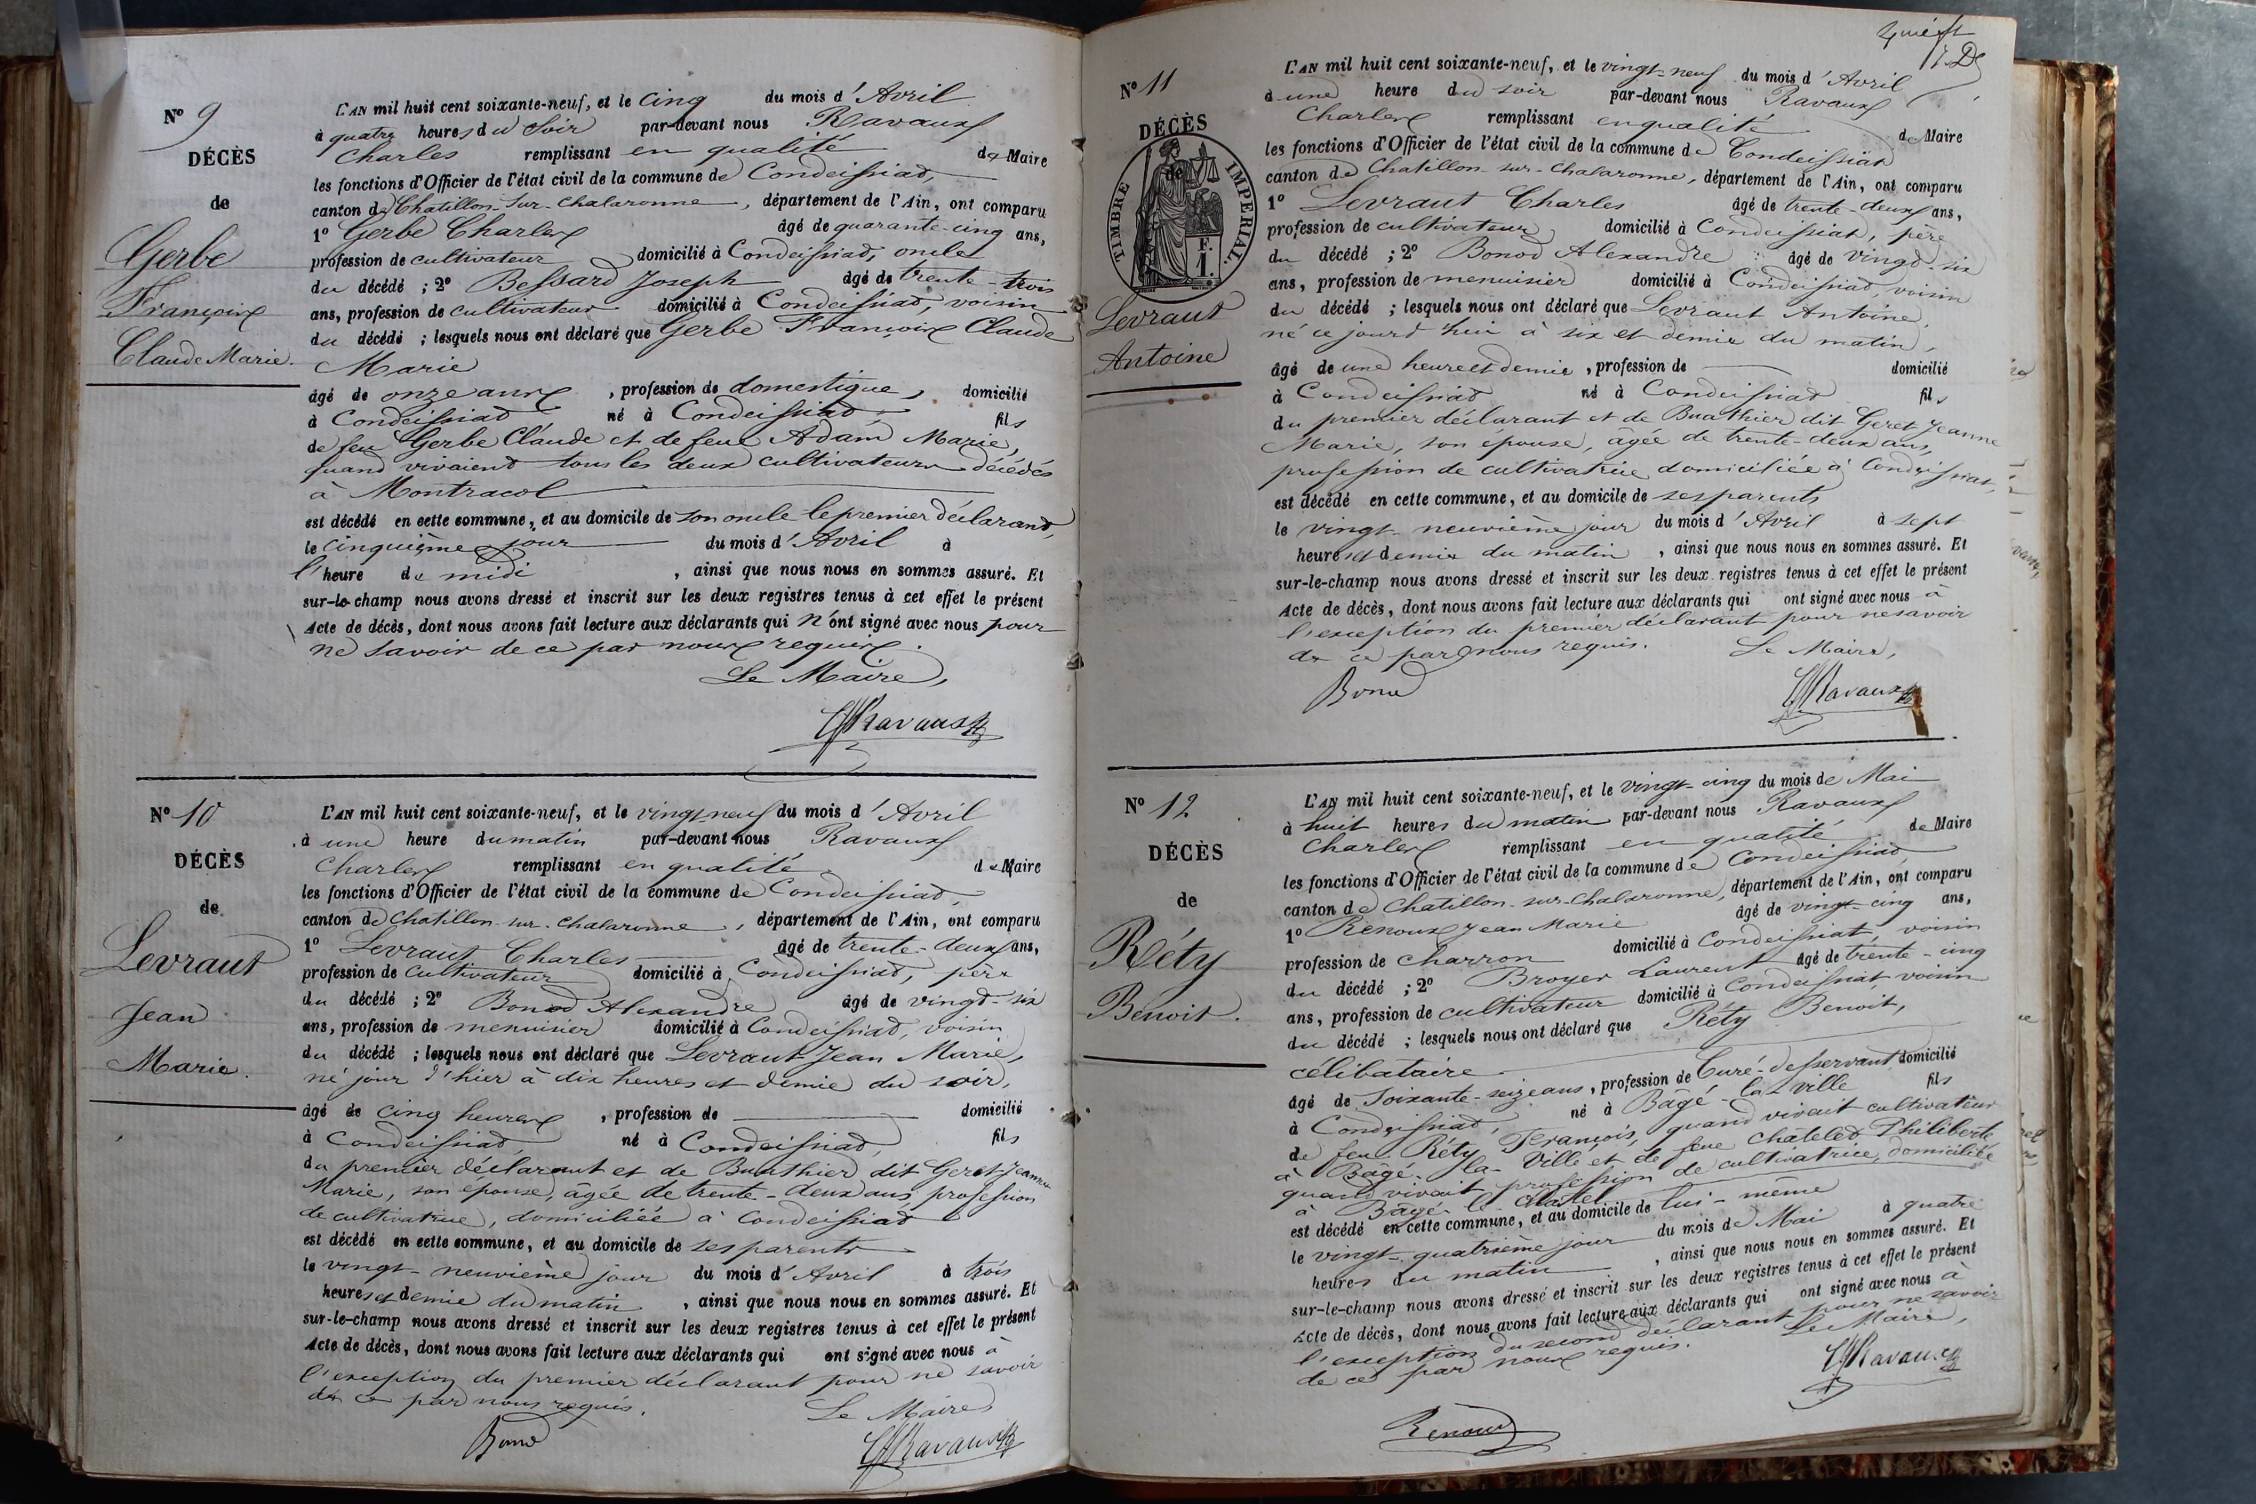 N° 9
DÉCÈS
de
Gerbe
François
Claude Marie.
L'AN mil huit cent soixante-neuf, et le cinq du mois d'Avril
à quatre heures du soir par-devant nous Ravaux
Charles remplissant en qualité de Maire
les fonctions d'Officier de l'état civil de la commune de Condeissiat,
canton de Chatillon-sur-Chalaronne, département de l'Ain, ont comparu
1° Gerbe Charles âgé de quarante-cinq ans,
profession de cultivateur domicilié à Condeissiat, oncle
du décédé ; 2° Bessard Joseph âgé de trente-trois
ans, profession de cultivateur domicilié à Condeissiat, voisin
du décédé ; lesquels nous ont déclaré que Gerbe François Claude
Marie
âgé de onze ans, profession de domestique, domicilié
à Condeissiat né à Condeissiat, fils
de feu Gerbe Claude et de feue Adam Marie,
quand vivaient tous les deux cultivateurs décédés
à Montracol
est décédé en cette commune, et au domicile de son oncle le premier déclarant,
le cinquième jour du mois d'Avril à
l'heure de midi, ainsi que nous nous en sommes assuré. Et
sur-le-champ nous avons dressé et inscrit sur les deux registres tenus à cet effet le présent
Acte de décès, dont nous avons fait lecture aux déclarants qui n'ont signé avec nous pour
ne savoir de ce par nous requis.
Le Maire,
Ravaux
N° 10
DÉCÈS
de
Levraut
Jean
Marie.
L'AN mil huit cent soixante-neuf, et le vingt-neuf du mois d'Avril
à une heure du matin par-devant nous Ravaux
Charles remplissant en qualité de Maire
les fonctions d'Officier de l'état civil de la commune de Condeissiat,
canton de Chatillon-sur-Chalaronne, département de l'Ain, ont comparu
1° Levraut Charles âgé de trente-deux ans,
profession de cultivateur domicilié à Condeissiat, père
du décédé ; 2° Bonod Alexandre âgé de vingt-six
ans, profession de menuisier domicilié à Condeissiat, voisin
du décédé ; lesquels nous ont déclaré que Levraut Jean Marie,
né jour d'hier à dix heures et demie du soir,
âgé de cinq heures, profession de domicilié
à Condeissiat, né à Condeissiat, fils
du premier déclarant et de Buathier dit Geret Jeanne
Marie, son épouse, âgée de trente-deux ans profession
de cultivatrice, domiciliée à Condeissiat
est décédé en cette commune, et au domicile de ses parents
le vingt-neuvième jour du mois d'Avril à trois
heures et demie du matin, ainsi que nous nous en sommes assuré. Et
sur-le-champ nous avons dressé et inscrit sur les deux registres tenus à cet effet le présent
Acte de décès, dont nous avons fait lecture aux déclarants qui ont signé avec nous à
l'exception du premier déclarant pour ne savoir
de ce par nous requis.
Le Maire
Bonod
Ravaux
N° 11
DÉCÈS
de
TIMBRE IMPERIAL.
1 F.
Levraut
Antoine
L'AN mil huit cent soixante-neuf, et le vingt-neuf du mois d'Avril
à une heure du soir par-devant nous Ravaux
Charles remplissant en qualité de Maire
les fonctions d'Officier de l'état civil de la commune de Condeissiat
canton de Chatillon-sur-Chalaronne, département de l'Ain, ont comparu
1° Levraut Charles âgé de trente-deux ans,
profession de cultivateur domicilié à Condeissiat, père
du décédé ; 2° Bonod Alexandre âgé de vingt-six
ans, profession de menuisier domicilié à Condeissiat, voisin
du décédé ; lesquels nous ont déclaré que Levraut Antoine,
né ce jourd'hui à six et demie du matin,
âgé de une heure et demie, profession de domicilié
à Condeissiat né à Condeissiat fils
du premier déclarant et de Buathier dit Geret Jeanne
Marie, son épouse, âgée de trente-deux ans,
profession de cultivatrice domiciliée à Condeissiat,
est décédé en cette commune, et au domicile de ses parents
le vingt-neuvième jour du mois d'Avril à sept
heures et demie du matin, ainsi que nous nous en sommes assuré. Et
sur-le-champ nous avons dressé et inscrit sur les deux registres tenus à cet effet le présent
Acte de décès, dont nous avons fait lecture aux déclarants qui ont signé avec nous à
l'exception du premier déclarant pour ne savoir
de ce par nous requis.
Le Maire,
Bonod
Ravaux
N° 12
DÉCÈS
de
Réty
Benoit.
L'AN mil huit cent soixante-neuf, et le vingt-cinq du mois de Mai
à huit heures du matin par-devant nous Ravaux
Charles remplissant en qualité de Maire
les fonctions d'Officier de l'état civil de la commune de Condeissiat,
canton de Chatillon-sur-Chalaronne, département de l'Ain, ont comparu
1° Renoux Jean Marie âgé de vingt-cinq ans,
profession de charron domicilié à Condeissiat, voisin
du décédé ; 2° Broyer Laurent âgé de trente-cinq
ans, profession de cultivateur domicilié à Condeissiat, voisin
du décédé ; lesquels nous ont déclaré que Réty Benoit,
célibataire
âgé de soixante-seize ans, profession de Curé-desservant, domicilié
à Condeissiat, né à Bâgé-la-ville fils
de feu Réty François, quand vivait cultivateur
à Bâgé-la-Ville et de feue Châtelet Philiberte
quand vivait profession de cultivatrice, domiciliée
à Bâgé-le-chatel
est décédé en cette commune, et au domicile de lui-même
le vingt-quatrième jour du mois de Mai à quatre
heures du matin, ainsi que nous nous en sommes assuré. Et
sur-le-champ nous avons dressé et inscrit sur les deux registres tenus à cet effet le présent
Acte de décès, dont nous avons fait lecture aux déclarants qui ont signé avec nous à
l'exception du second déclarant pour ne savoir
de ce par nous requis.
Le Maire,
Ravaux
Renoux